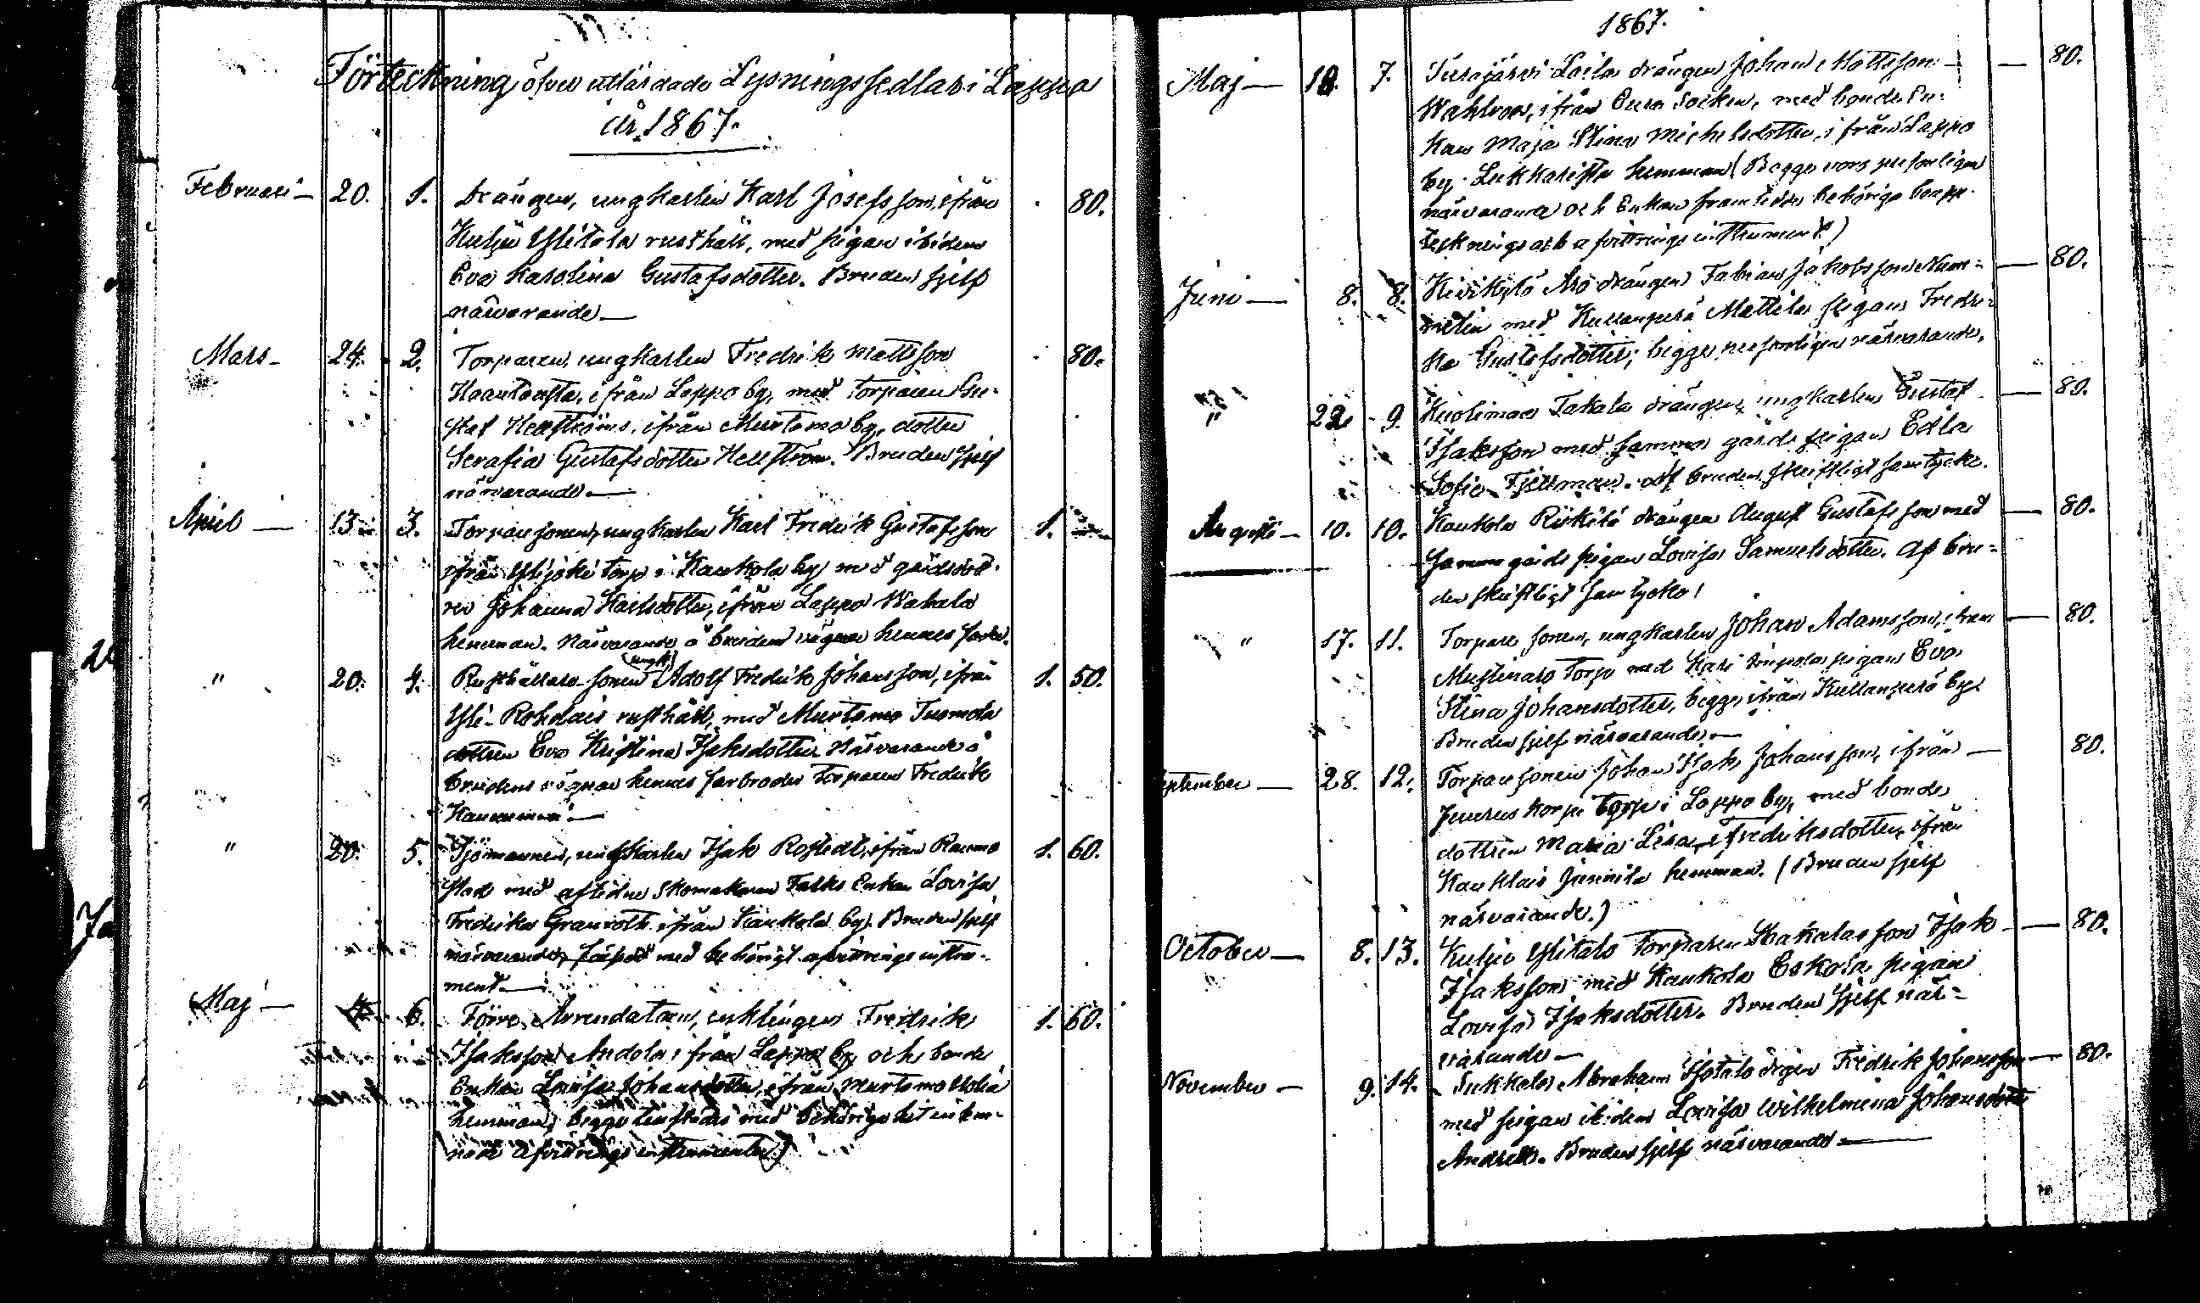 Förteckning öfver utfärdade Lysningssedlar i Lappo
år 1867.
Februari — 20. 1. Drängen, ungkarlen Karl Josefsson, ifrån 80.
Kulju Ylitalo rusthåll, med pigan ibidem
Eva Karolina Gustafsdotter. Bruden sjelf
närvarande. —
Mars — 24. 2. Torparen, ungkarlen Fredrik Mattsson 80.
ifrån Lappo by, med torparen Gu-
staf Hellströms, ifrån Murtamo by, dotter
Serafia Gustafsdotter Hellström. Bruden sjelf
närvarande. —
April — 13. 3. Torparesonen, ungkarlen Karl Fredrik Gustafsson 1. —
ifrån Ylijoki torp i Kaukola by med
Johanna Karlsdotter, ifrån Lappo
hemman. Närvarande å brudens vägnar hennes
" 20. 4. Rusthållare-sonen (ungk.) Adolf Fredrik Johansson, ifrån 1. 50.
Yli-Rohdais rusthåll, med Murtamo Tuomola
dottren Eva Kristina Isaksdotter. Närvarande å
brudens vägnar hennes farbroder Torparen Fredrik
" 20. 5. Sjömannen, ungkarlen Isak Rostedt, ifrån Raumo 1. 60.
stad med aflidne skomakaren Falks Enkan Lovisa
Fredrika Granroth ifrån Kaukola by. Bruden sjelf
närvarande, försedd med behörigt afvittrings instru-
ment. —
Maj — 4. 6. Förre Arrendatorn, enklingen Fredrik 1. 60.
Isaksson Andola ifrån Lappo by och bonde
Enkan Lovisa Johansdotter, ifrån Murtamo
hemman, begge med behöriga
afvittrings instrumenter.)
1867.
Maj — 18. 7. drängen Johan Mattsson — 80.
ifrån Eura Socken, med bonde En-
kan Maja Stina Michelsdotter, ifrån Lappo
by Lukkarista hemman (Begge voro personligen
närvarande och Enkan framtedde behöriga
tecknings och afvittrings instrument.)
Juni — 8. 8. Kivikylä drängen Fabian Jakobsson Num- — 80.
melin med Kullanperä Mattila pigan Fredri-
ka Gustafsdotter; begge personligen närvarande.
" 22. 9. Kuolimaa Takala drängen, ungkarlen Gustaf — 80.
Isaksson med samma gårds pigan Edla
Sofia Fjellman. Af bruden skriftligt samtycke.
Augusti — 10. 10. Kaukola Riikilä drängen August Gustafsson med — 80.
samma gårds pigan Lovisa Samuelsdotter. Af bru-
den skriftligt samtycke!
" 17. 11. Torpare sonen, ungkarlen Johan Adamsson, ifrån — 80.
Mustinalo Torp med pigan Eva
Stina Johansdotter, begge ifrån Kullanperä by.
Bruden sjelf närvarande. —
September — 28. 12. Torparesonen Johan Isak Johansson, ifrån — 80.
torp i Lappo by, med bonde
dottren Maria Lisa Fredriksdotter, ifrån
Kauklais Junnila hemman. (Bruden sjelf
närvarande.)
October — 8. 13. Kulju Ylitalo Torparen son Isak — 80.
Isaksson med Kaukola Eskola pigan
Lovisa Isaksdotter. Bruden sjelf när-
varande —
November — 9. 14. Sukkala Abraham drgen Fredrik Johansson — 80.
med pigan ibidem Lovisa Wilhelmina Johansdotter
Bruden sjelf närvarande —